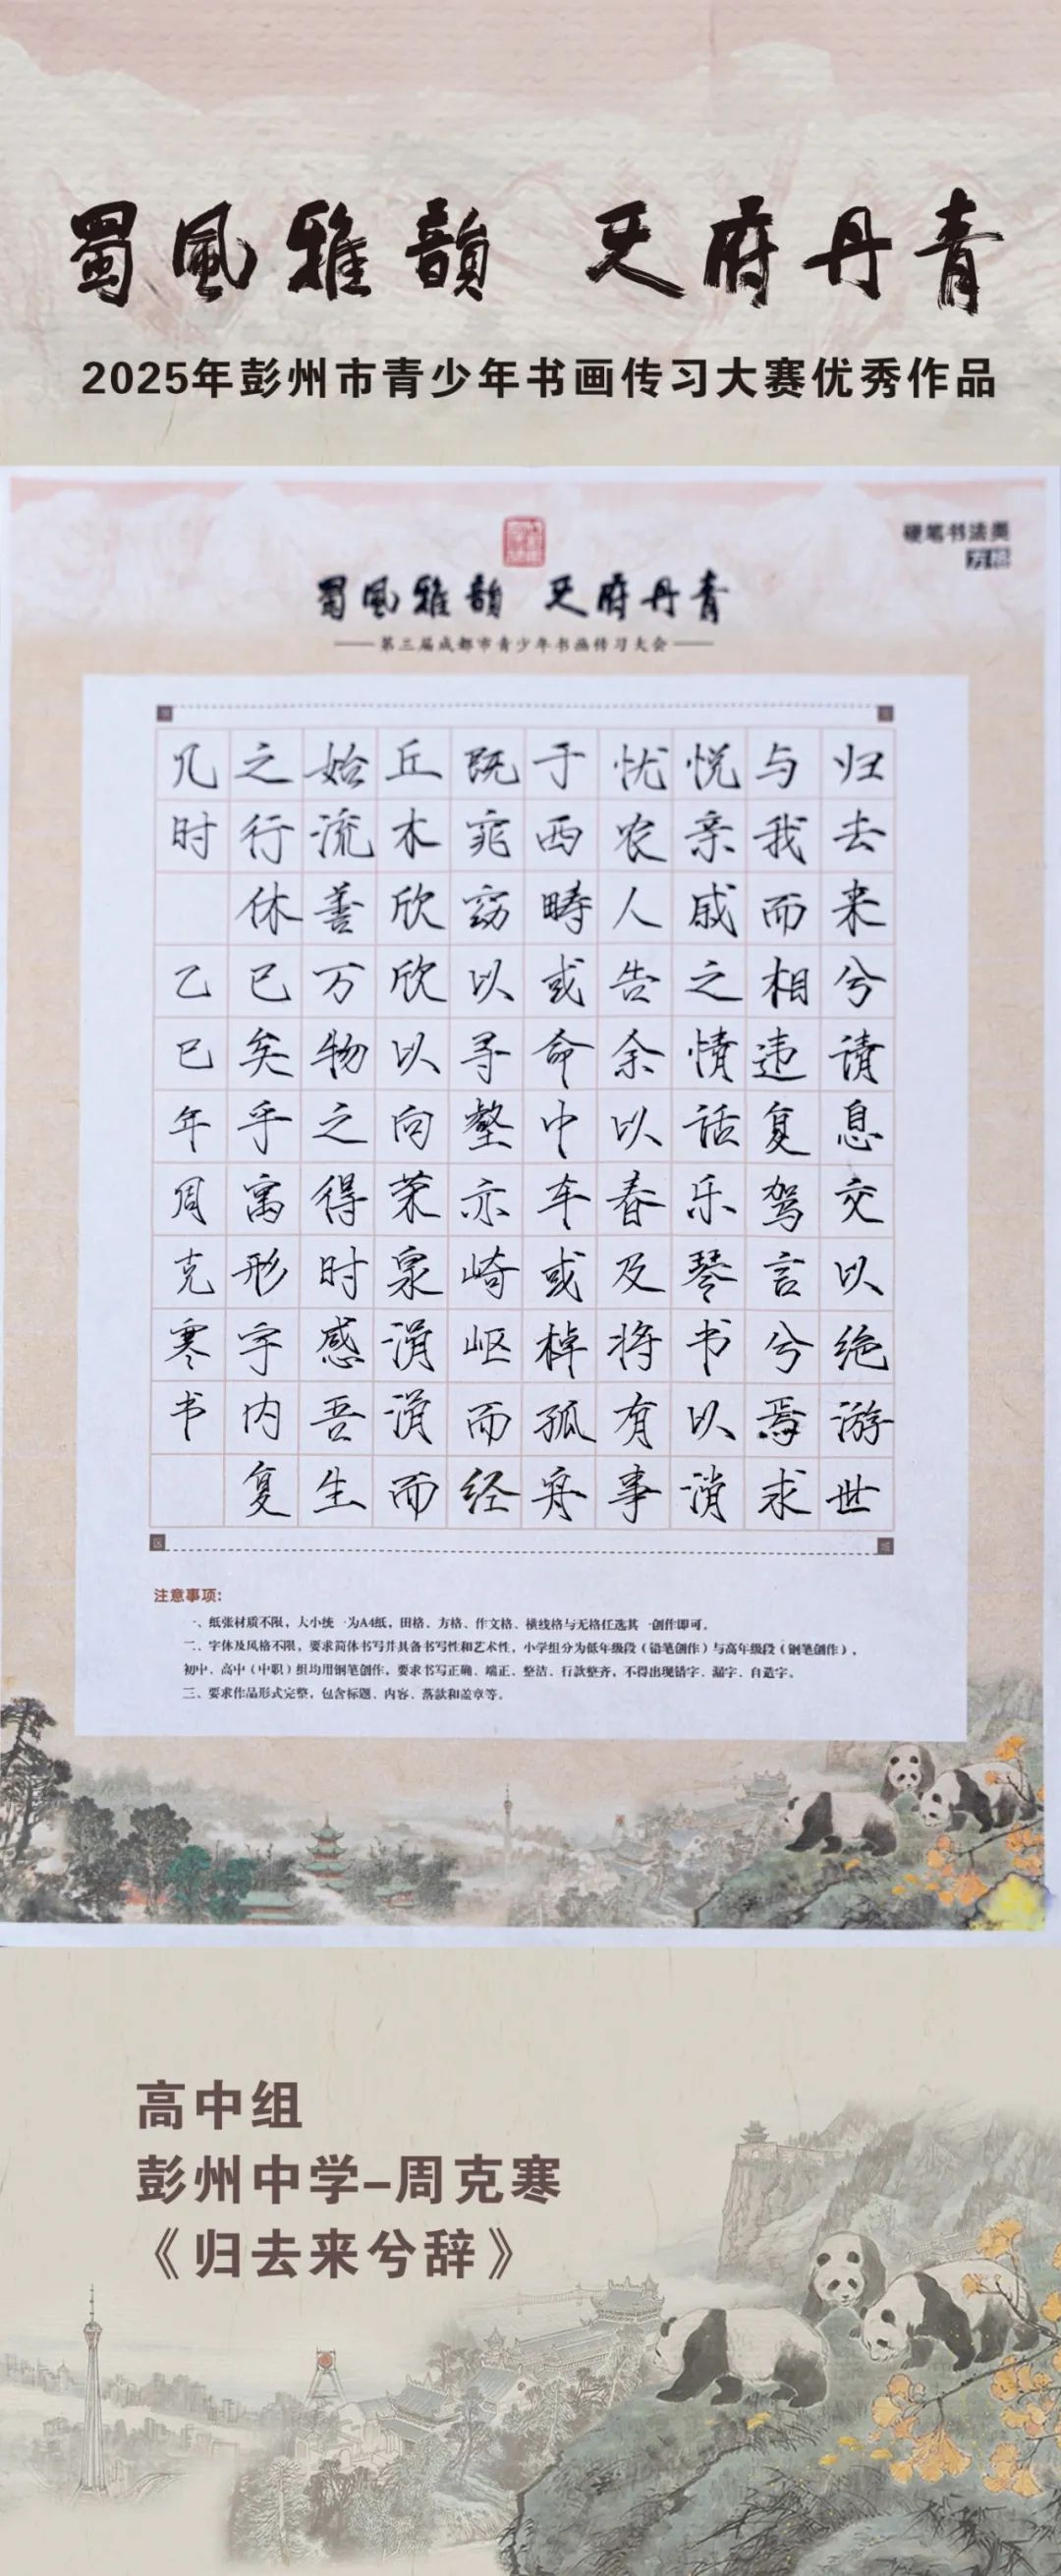 蜀風雅韻 天府丹青
2025年彭州市青少年书画传习大赛优秀作品
硬笔书法类
方格
蜀風雅韻 天府丹青
第三届成都市青少年书画传习大会
归去来兮请息交以绝游世
与我而相违复驾言兮焉求
悦亲戚之情话乐琴书以消
忧农人告余以春及将有事
于西畴或命中车或棹孤舟
既窕窈以寻壑亦崎岖而经
丘木欣欣以向荣泉涓涓而
始流善万物之得时感吾生
之行休已矣乎寓形宇内复
几时 乙巳年周克寒书
区
域
注意事项:
一、纸张材质不限，大小统一为A4纸，田格、方格、作文格、横线格与无格任选其一创作即可。
二、字体及风格不限，要求简体书写并具备书写性和艺术性，小学组分为低年级段（铅笔创作）与高年级段（钢笔创作），
初中、高中（中职）组均用钢笔创作，要求书写正确、端正、整洁、行款整齐，不得出现错字、漏字、自造字。
三、要求作品形式完整，包含标题、内容、落款和盖章等。
高中组
彭州中学-周克寒
《归去来兮辞》